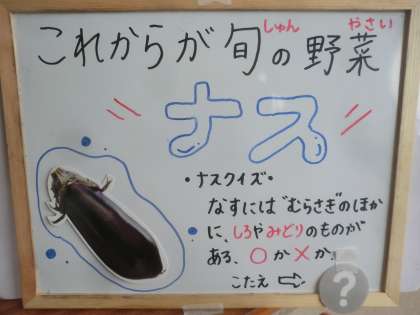 しゅん やさい
これからが旬の野菜
ナス
・ナスクイズ・
なすには"むらさき"のほか
に、しろやみどりのものが
ある、○か×か。
こたえ ⇨ ?